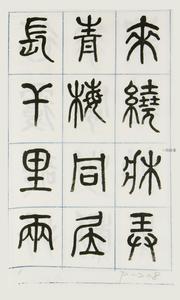 來繞牀弄
青梅同居
長干里兩